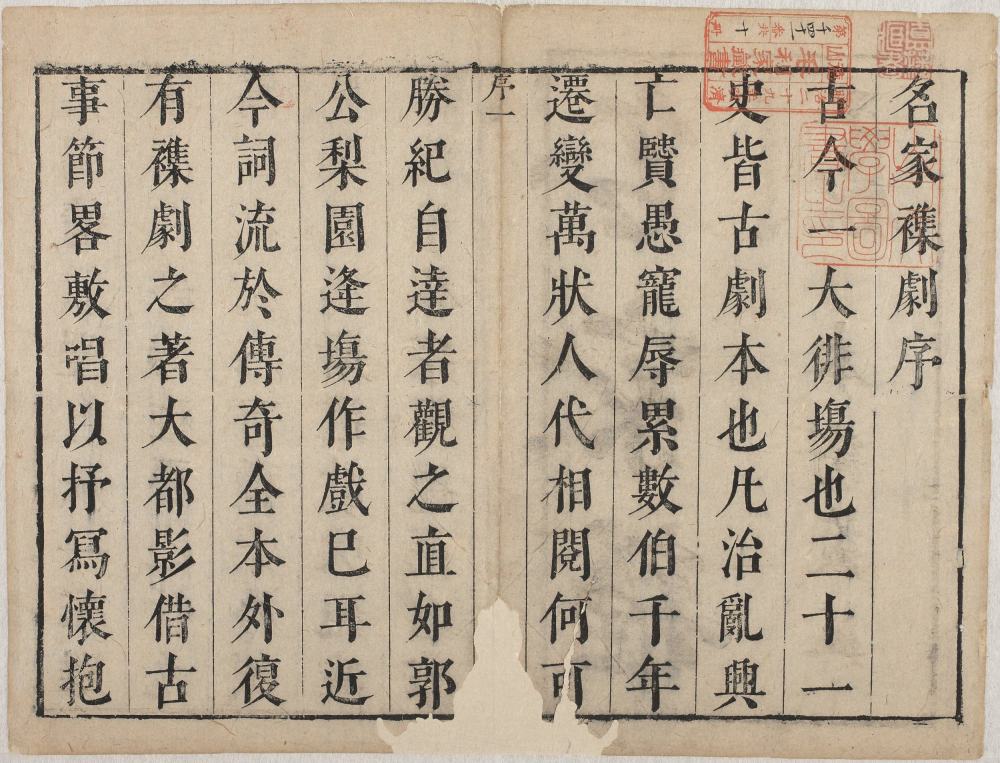 名家襍劇序
古今一大徘塲也二十一
史皆古劇本也凡治亂興
亡賢愚寵辱累數伯千年
遷變萬狀人代相閱何可
序一
勝紀自達者觀之直如郭
公梨園逢塲作戲巳耳近
今詞流於傳奇全本外復
有襍劇之著大都影借古
事節畧敷唱以抒冩懷抱